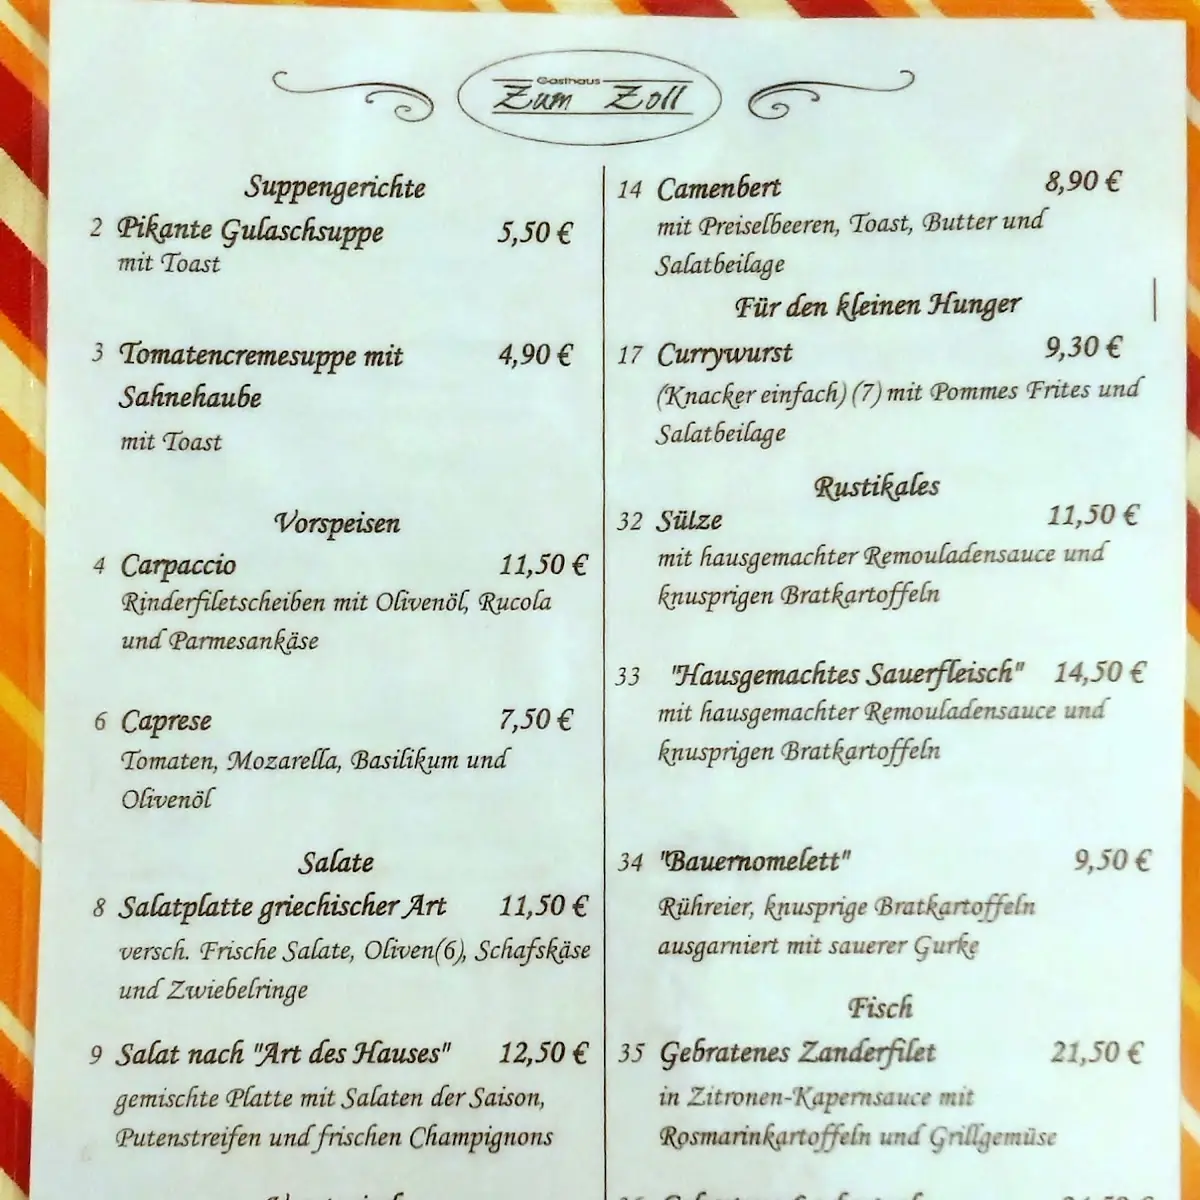 Gasthaus
Zum Zoll
Suppengerichte
2 Pikante Gulaschsuppe 5,50 €
mit Toast
3 Tomatencremesuppe mit 4,90 €
Sahnehaube
mit Toast
Vorspeisen
4 Carpaccio 11,50 €
Rinderfiletscheiben mit Olivenöl, Rucola
und Parmesankäse
6 Caprese 7,50 €
Tomaten, Mozarella, Basilikum und
Olivenöl
Salate
8 Salatplatte griechischer Art 11,50 €
versch. Frische Salate, Oliven(6), Schafskäse
und Zwiebelringe
9 Salat nach "Art des Hauses" 12,50 €
gemischte Platte mit Salaten der Saison,
Putenstreifen und frischen Champignons
14 Camenbert 8,90 €
mit Preiselbeeren, Toast, Butter und
Salatbeilage
Für den kleinen Hunger
17 Currywurst 9,30 €
(Knacker einfach) (7) mit Pommes Frites und
Salatbeilage
Rustikales
32 Sülze 11,50 €
mit hausgemachter Remouladensauce und
knusprigen Bratkartoffeln
33 "Hausgemachtes Sauerfleisch" 14,50 €
mit hausgemachter Remouladensauce und
knusprigen Bratkartoffeln
34 "Bauernomelett" 9,50 €
Rühreier, knusprige Bratkartoffeln
ausgarniert mit sauerer Gurke
Fisch
35 Gebratenes Zanderfilet 21,50 €
in Zitronen-Kapernsauce mit
Rosmarinkartoffeln und Grillgemüse